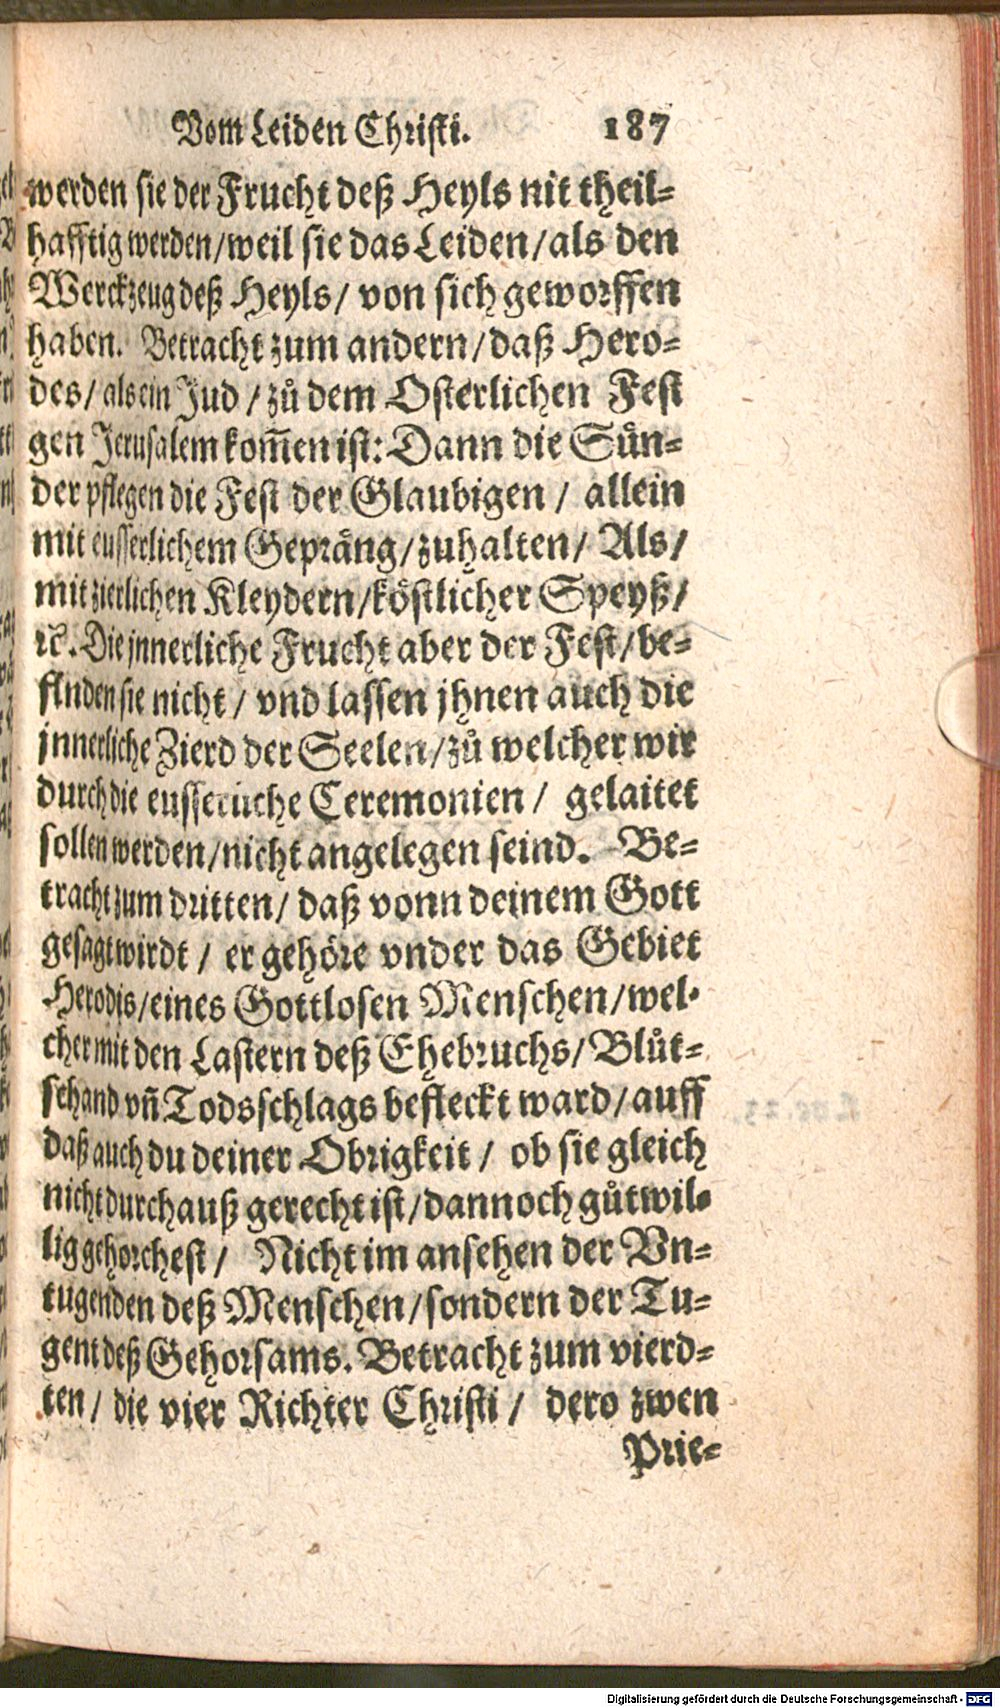 Vom Leiden Christi. 187
werden sie der Frucht deß Heyls nit theil=
hafftig werden/weil sie das Leiden/als den
Werckzeug deß Heyls/ von sich geworffen
haben. Betracht zum andern/daß Hero=
des/ als ein Jud /zů dem Osterlichen Fest
gen Jerusalem kom̄en ist: Dann die Sün=
der pflegen die Fest der Glaubigen / allein
mit eusserlichem Gepräng/zuhalten/ Als/
mit zierlichen Kleydern/köstlicher Speyß/
ꝛc. Die jnnerliche Frucht aber der Fest/be=
finden sie nicht / vnd lassen jhnen auch die
jnnerliche Zierd der Seelen/zů welcher wir
durch die eusserliche Ceremonien / gelaitet
sollen werden/nicht angelegen seind. Be=
tracht zum dritten/ daß vonn deinem Gott
gesagt wirdt / er gehöre vnder das Gebiet
Herodis/eines Gottlosen Menschen/wel=
cher mit den Lastern deß Ehebruchs/ Blůt=
schand vn̄ Todsschlags befleckt ward/auff
daß auch du deiner Obrigkeit / ob sie gleich
nicht durchauß gerecht ist/dannoch gůtwil=
lig gehorchest / Nicht im ansehen der Vn=
tugenden deß Menschen/sondern der Tu=
gent deß Gehorsams. Betracht zum vierd=
ten / die vier Richter Christi / dero zwen
Prie=
Digitalisierung gefördert durch die Deutsche Forschungsgemeinschaft - DFG